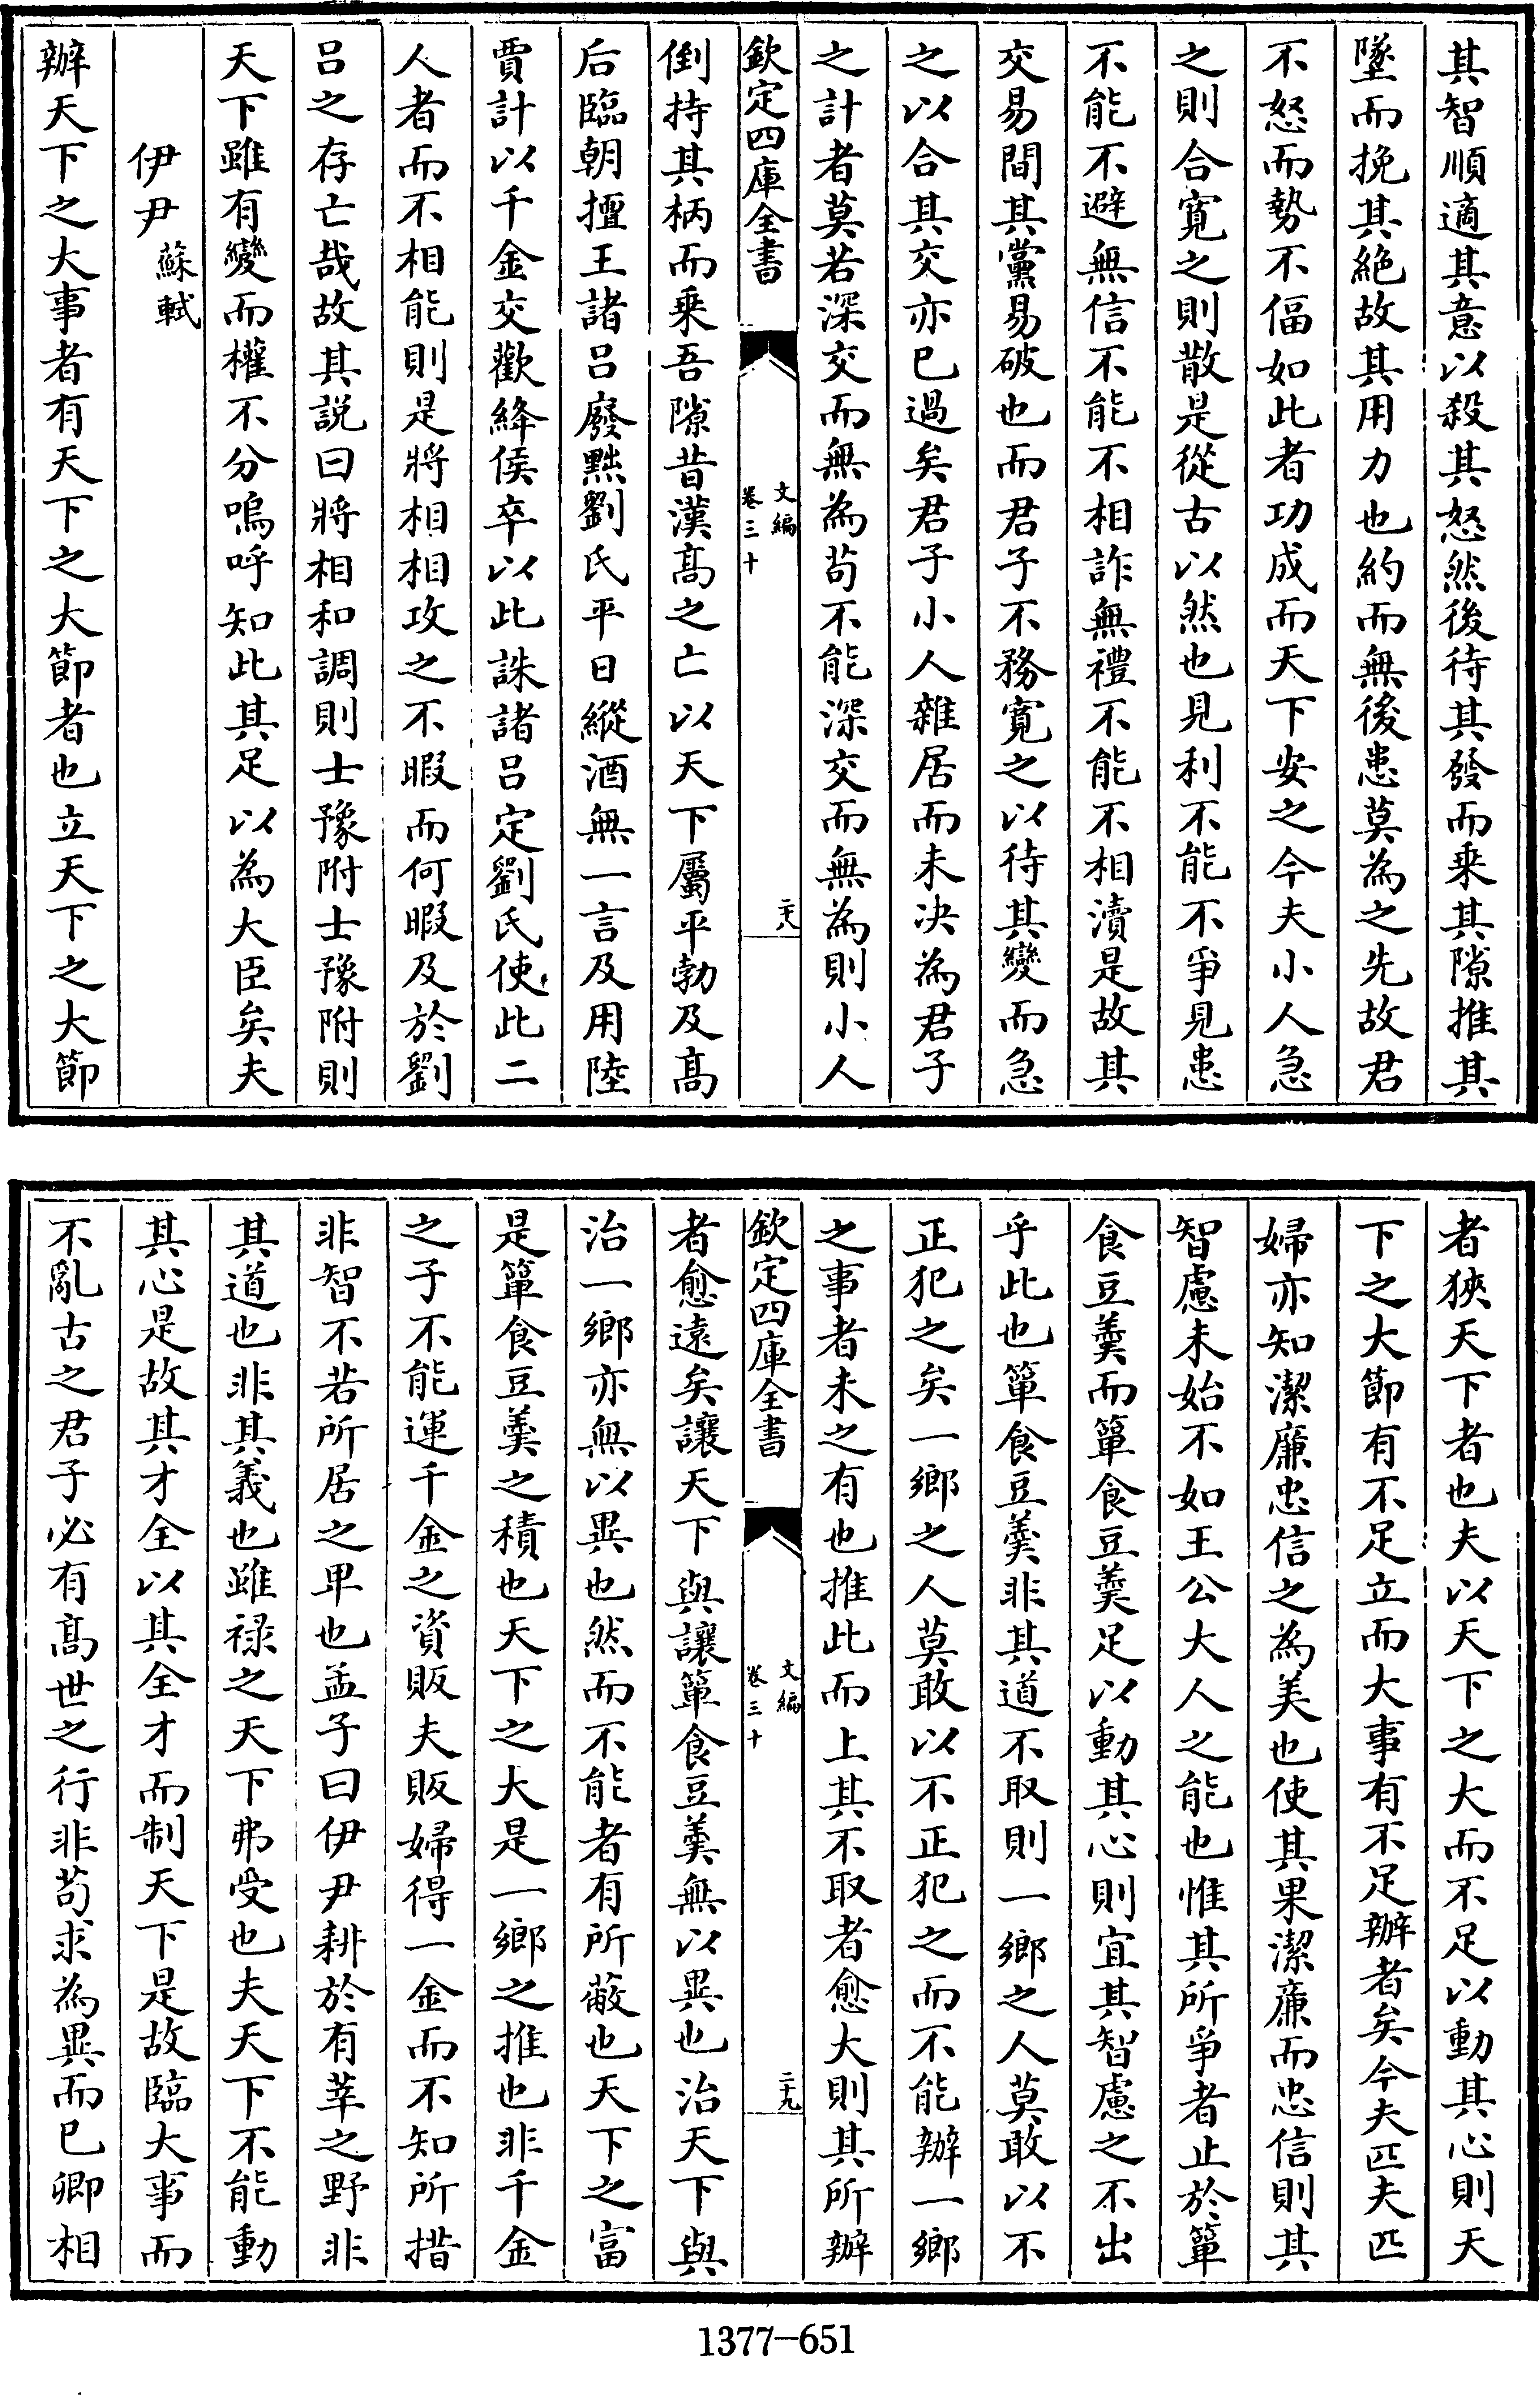 其智順適其意以殺其怒然後待其發而乗其隙推其
墜而挽其絶故其用力也約而無後患莫為之先故君
不怒而勢不偪如此者功成而天下安之今夫小人急
之則合寛之則散是從古以然也見利不能不爭見患
不能不避無信不能不相詐無禮不能不相瀆是故其
交易間其黨易破也而君子不務寛之以待其變而急
之以合其交亦已過矣君子小人雜居而未决為君子
之計者莫若深交而無為苟不能深交而無為則小人
欽定四庫全書
文編
卷三十
二十八
倒持其柄而乗吾隙昔漢髙之亡以天下屬平勃及髙
后臨朝擅王諸吕廢黜劉氏平日縱酒無一言及用陸
賈計以千金交歡絳侯卒以此誅諸吕定劉氏使此二
人者而不相能則是將相相攻之不暇而何暇及於劉
吕之存亡哉故其説曰將相和調則士豫附士豫附則
天下雖有變而權不分嗚呼知此其足以為大臣矣夫
伊尹 蘇軾
辦天下之大事者有天下之大節者也立天下之大節
者狹天下者也夫以天下之大而不足以動其心則天
下之大節有不足立而大事有不足辦者矣今夫匹夫匹
婦亦知潔廉忠信之為美也使其果潔廉而忠信則其
智慮未始不如王公大人之能也惟其所爭者止於簞
食豆羮而簞食豆羮足以動其心則宜其智慮之不出
乎此也簞食豆羮非其道不取則一鄉之人莫敢以不
正犯之矣一鄉之人莫敢以不正犯之而不能辦一鄉
之事者未之有也推此而上其不取者愈大則其所辦
欽定四庫全書
文編
卷三十
二十九
者愈遠矣讓天下與讓簞食豆羮無以異也治天下與
治一鄉亦無以異也然而不能者有所蔽也天下之富
是簞食豆羮之積也天下之大是一鄉之推也非千金
之子不能運千金之資販夫販婦得一金而不知所措
非智不若所居之卑也孟子曰伊尹耕於有莘之野非
其道也非其義也雖禄之天下弗受也夫天下不能動
其心是故其才全以其全才而制天下是故臨大事而
不亂古之君子必有髙世之行非苟求為異而已卿相
1377-651